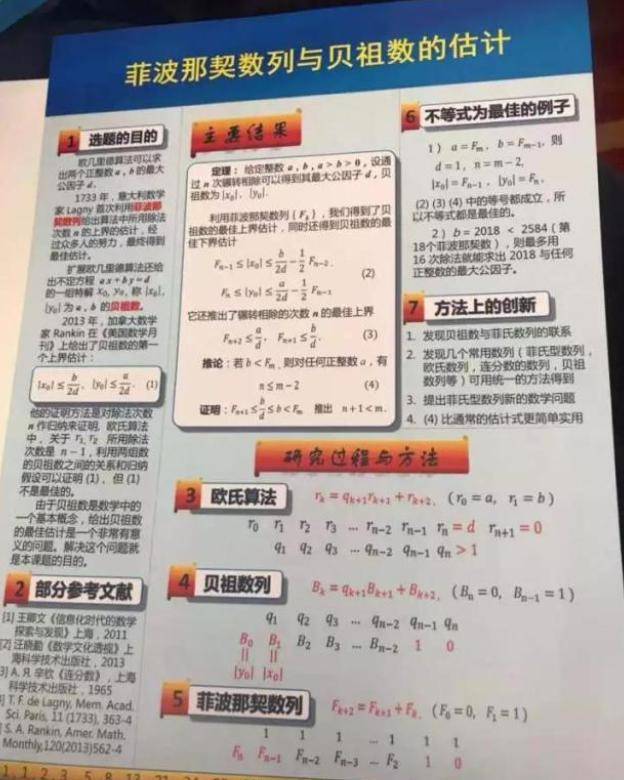 菲波那契数列与贝祖数的估计
1 选题的目的
欧几里德算法可以求
出两个正整数 a , b 的最大
公因子 d.
1733 年，意大利数学
家 Lagny 首次利用菲波那
契数列给出算法中所用除法
次数 n 的上界的估计，经
过众多人的努力，最终得到
最佳估计。
扩展欧几里德算法还给
出不定方程 ax + by = d
的一组特解 x₀, y₀, 称 |x₀|,
|y₀| 为 a , b 的贝祖数。
2013 年，加拿大数学
家 Rankin 在《美国数学月
刊》上给出了贝祖数的第一
个上界估计：
|x₀| ≤ b/2d, |y₀| ≤ a/2d. (1)
他的证明方法是对除法次数
n 作归纳来证明. 欧氏算法
中，关于 r₁, r₂ 所用除法
次数是 n − 1，利用两组数
的贝祖数之间的关系和归纳
假设可以证明 (1)，但 (1)
不是最佳的。
由于贝祖数是数学中的
一个基本概念，给出贝祖数
的最佳估计是一个非常有意
义的问题。解决这个问题就
是本课题的目的。
2 部分参考文献
[1] 王卿文《信息化时代的数学
探索与发现》上海，2011
[2] 汪晓勤《数学文化透视》上
海科学技术出版社，2013
3] А. Я. 辛钦《连分数》，上海
科学技术出版社，1965
] T. F. de Lagny, Mem. Acad.
Sci. Paris, 11 (1733), 363-4
] S. A. Rankin, Amer. Math.
Monthly,120(2013)562-4
主要结果
定理：给定整数 a , b , a > b > 0，设通
过 n 次辗转相除可以得到其最大公因子 d，贝
祖数为 |x₀|, |y₀|.
利用菲波那契数列 {Fₖ}，我们得到了贝
祖数的最佳上界估计，同时还得到贝祖数的最
佳下界估计
Fₙ₋₁ ≤ |x₀| ≤ b/2d − 1/2 Fₙ₋₂ ,
(2)
Fₙ ≤ |y₀| ≤ a/2d − 1/2 Fₙ₋₁
它还推出了辗转相除的次数 n 的最佳上界
Fₙ₊₂ ≤ a/d, Fₙ₊₁ ≤ b/d. (3)
推论：若 b < Fₘ，则对任何正整数 a，有
n ≤ m − 2 (4)
证明：Fₙ₊₁ ≤ b/d ≤ b < Fₘ 推出 n + 1 < m.
6 不等式为最佳的例子
1） a = Fₘ, b = Fₘ₋₁, 则
d = 1, n = m − 2,
|x₀| = Fₙ₋₁ , |y₀| = Fₙ.
(2) (3) (4) 中的等号都成立，所
以不等式都是最佳的。
2） b = 2018 < 2584（第
18个菲波那契数），则最多用
16 次除法就能求出 2018 与任何
正整数的最大公因子。
7 方法上的创新
1. 发现贝祖数与菲氏数列的联系
2. 发现几个常用数列（菲氏型数列，
欧氏数列，连分数的数列，贝祖
数列等）可用统一的方法得到
3. 提出菲氏型数列新的数学问题
4. (4) 比通常的估计式更简单实用
研究过程与方法
3 欧氏算法 rₖ = qₖ₊₁rₖ₊₁ + rₖ₊₂, (r₀ = a, r₁ = b)
r₀ r₁ r₂ r₃ … rₙ₋₂ rₙ₋₁ rₙ = d rₙ₊₁ = 0
q₁ q₂ q₃ … qₙ₋₂ qₙ₋₁ qₙ > 1
4 贝祖数列 Bₖ = qₖ₊₁Bₖ₊₁ + Bₖ₊₂, (Bₙ = 0, Bₙ₋₁ = 1)
q₁ q₂ q₃ … qₙ₋₂ qₙ₋₁ qₙ
B₀ B₁ B₂ B₃ … Bₙ₋₂ 1 0
|| ||
|y₀| |x₀|
5 菲波那契数列 Fₖ₊₂ = Fₖ₊₁ + Fₖ, (F₀ = 0, F₁ = 1)
1 1 1 … 1 1 1
Fₙ Fₙ₋₁ Fₙ₋₂ Fₙ₋₃ … F₂ 1 0
1, 1, 2, 3, 5, 8, 13, 21, 34